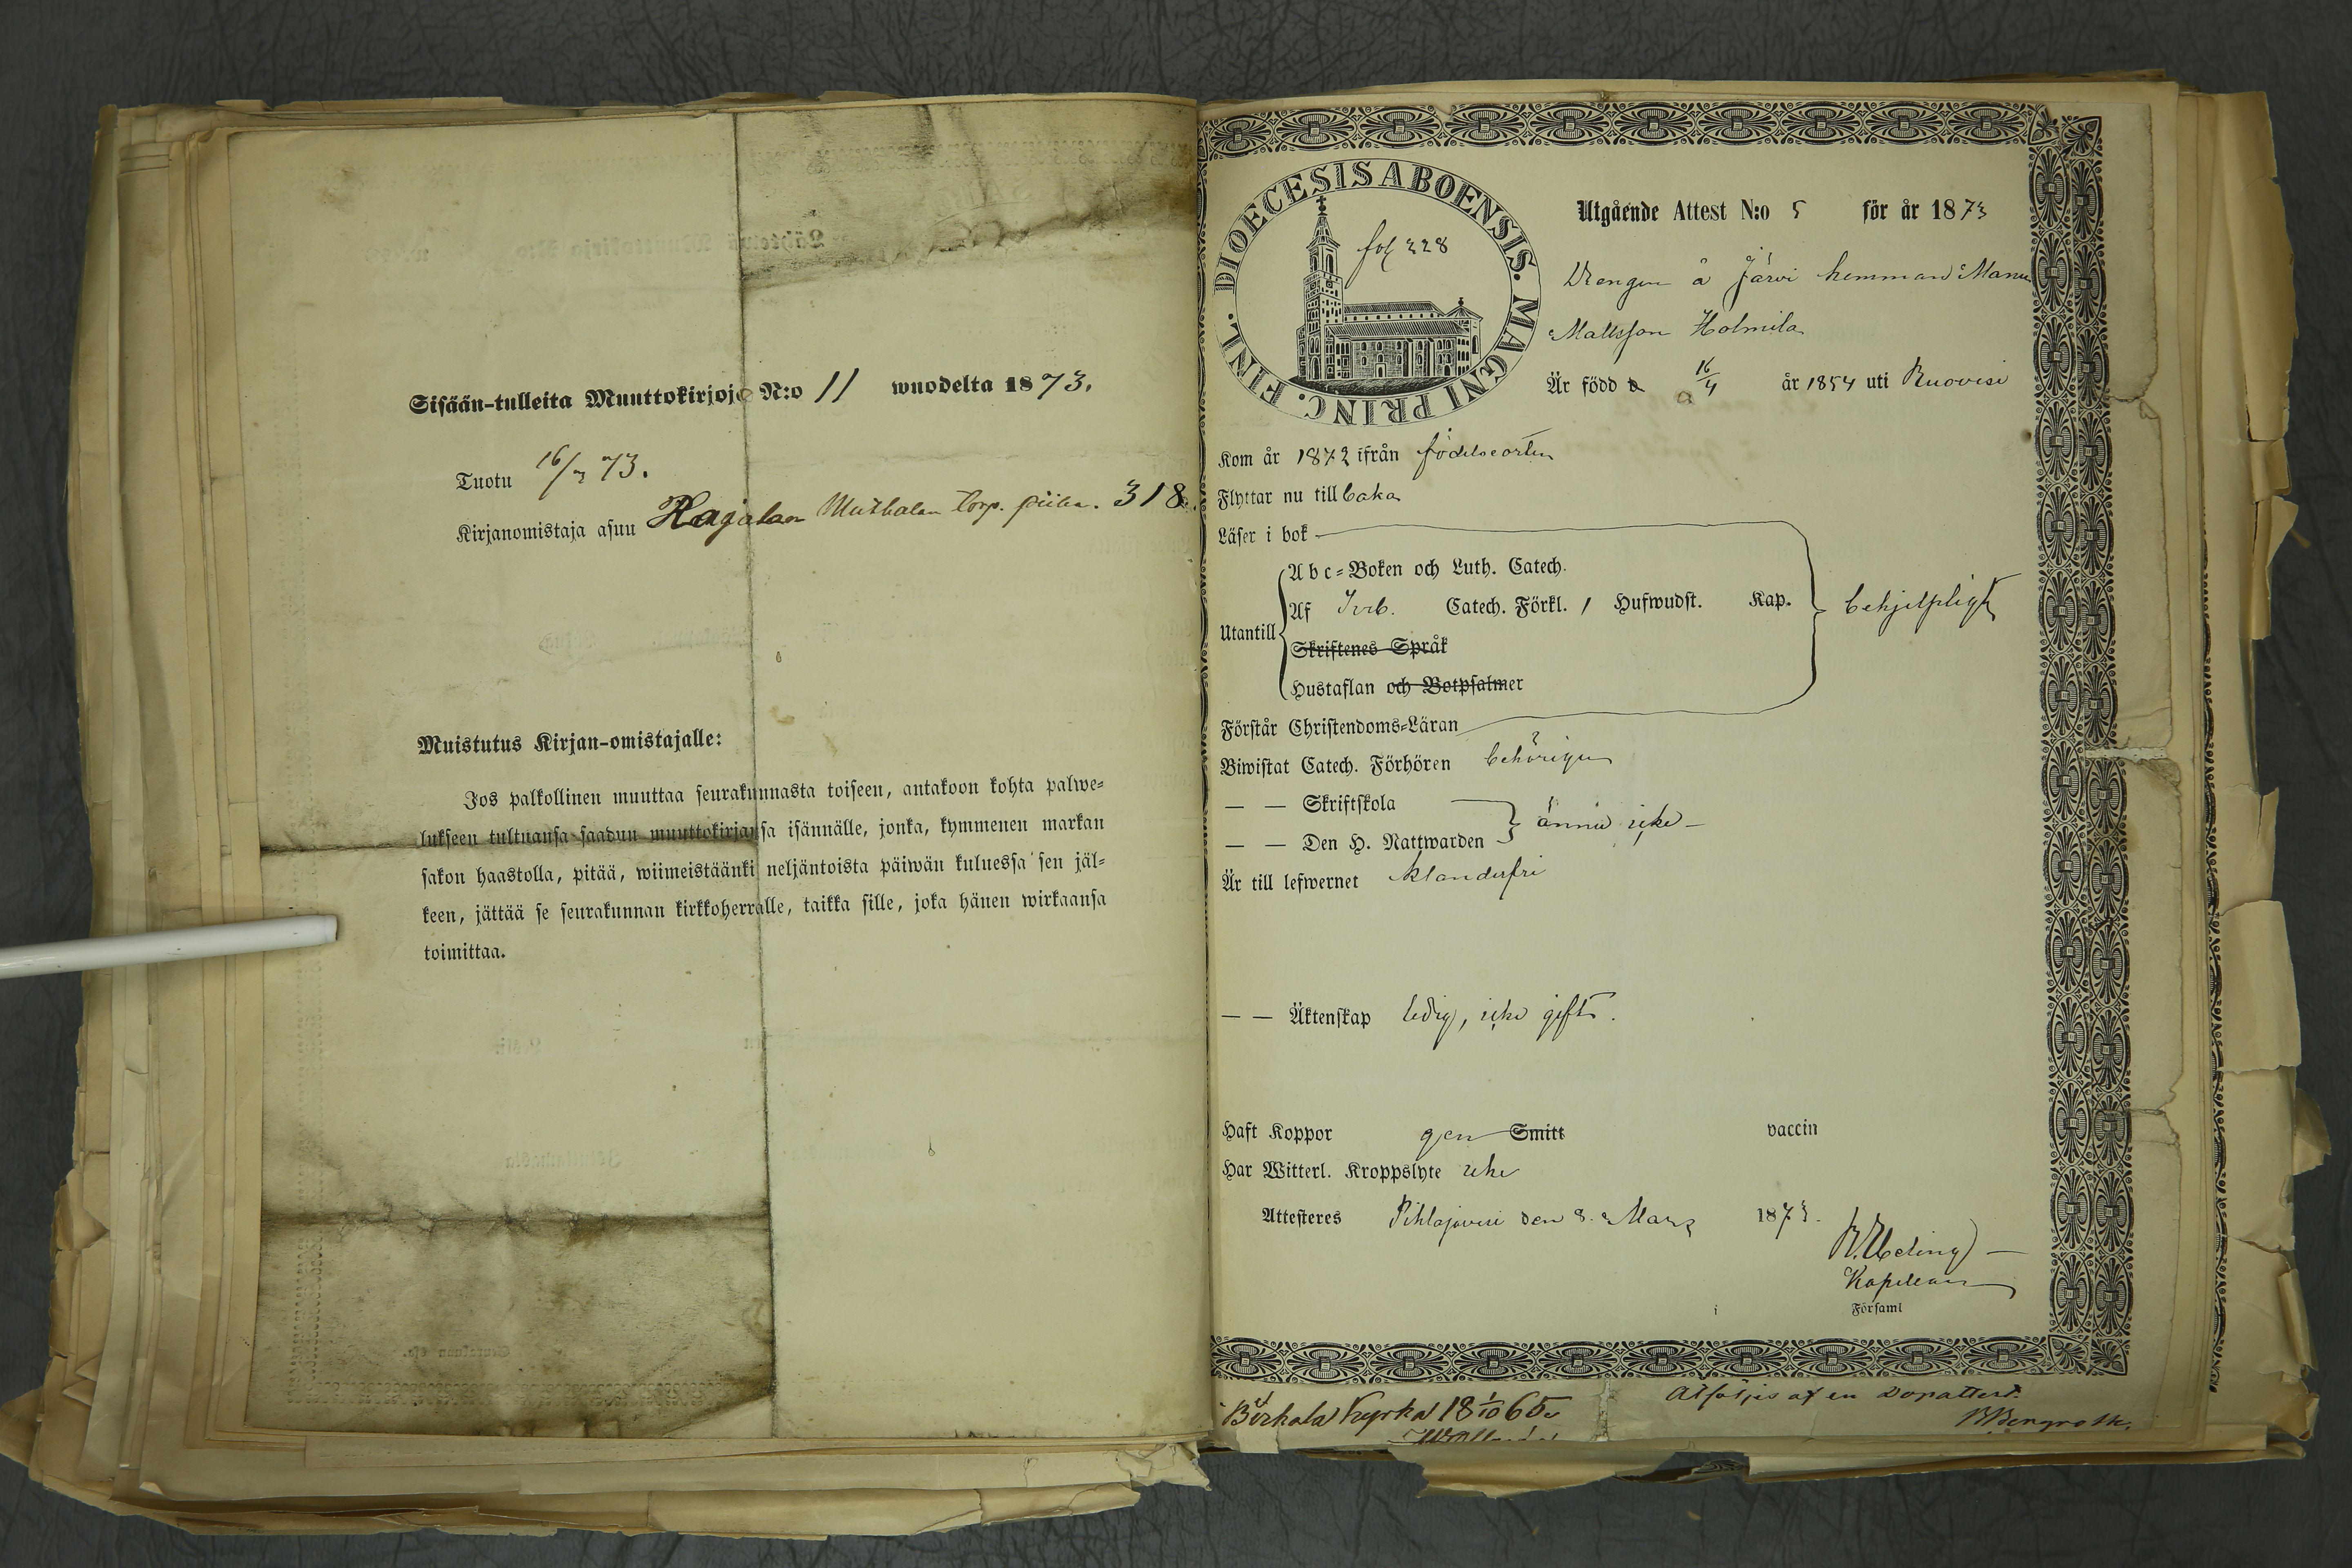 Sisään-tulleita Muuttokirjoja N:o 11 wuodelta 1873.
Tuotu 16/3 73.
Kirjanomistaja asuu Hagalan torp. piika. 318.
Muistutus Kirjan-omistajalle:
Jos palkollinen muuttaa seurakunnasta toiseen, antakoon kohta palwe-
lukseen tultuansa saadun muuttokirjansa isännälle, jonka, kymmenen markan
sakon haastolla, pitää, wiimeistäänki neljäntoista päiwän kuluessa sen jäl-
keen, jättää se seurakunnan kirkkoherralle, taikka sille, joka hänen wirkaansa
toimittaa.
DIOECESIS ABOENSIS. MAGNI PRINC. FINL.
fol 228
Utgående Attest N:o 5 för år 1873
Drengen å Järvi hemman Manu
Mattsson Holmila
Är född d 16/4 år 1854 uti Ruovesi
Kom år 1872 ifrån födelseorten
Flyttar nu tillbaka
Läser i bok
Utantill
Abc-Boken och Luth. Catech.
Af Catech. Förkl. 1 Hufwudst. Kap.
Skriftenes Språk
Hustaflan och Botpsalmer
behjelpligt
Förstår Christendoms-Läran
Biwistat Catech. Förhören behörigen
— — Skriftskola
— — Den H. Nattwarden
ännu icke —
Är till lefwernet klanderfri
— — Äktenskap ledig, icke gift.
Haft Koppor gen Smitt vaccin
Har Witterl. Kroppslyte icke
Attesteres Pihlajavesi den 8. Mars 1873.
Kapellan
i Församl
Birkala Kyrka 18 1/10 65.
Åtföljes af en